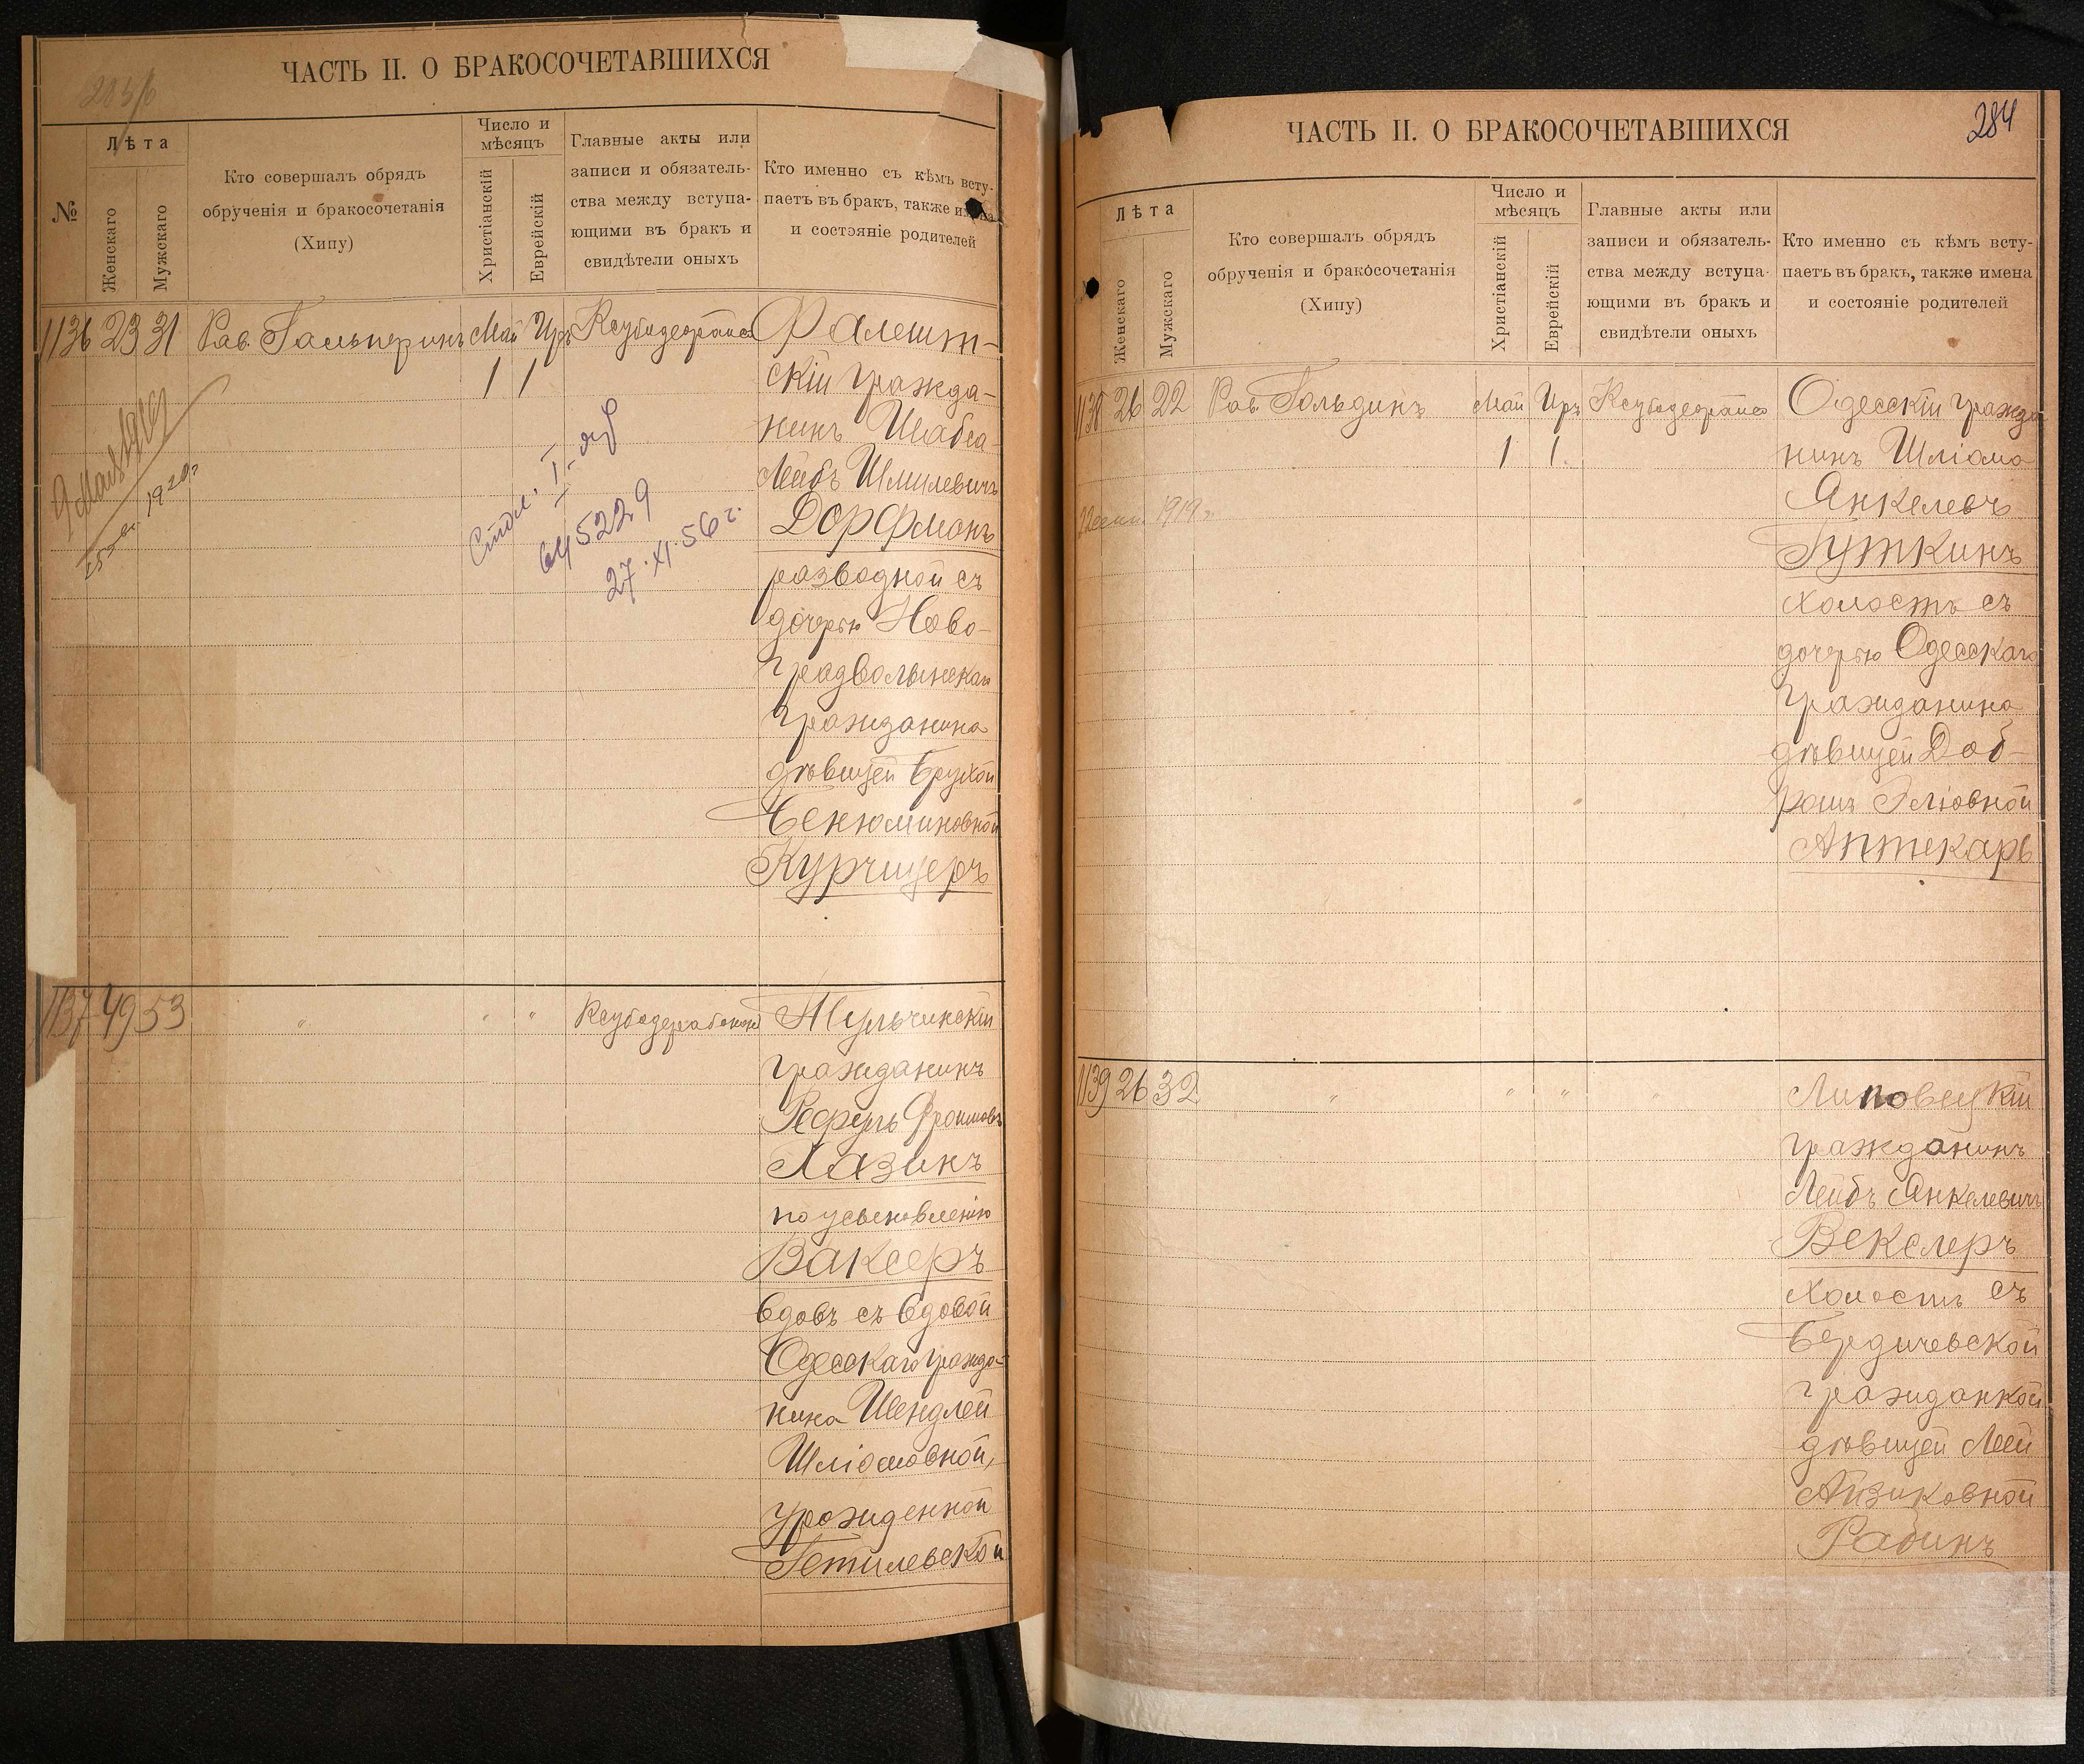 ЧАСТЬ II. О БРАКОСОЧЕТАВШИХСЯ
№
Лѣта
Женскаго
Мужскаго
Кто совершалъ обрядъ
обрученія и бракосочетанія
(Хипу)
Число и
мѣсяцъ
Христіанскій
Еврейскій
Главные акты или
записи и обязатель-
ства между вступа-
ющими въ бракъ и
свидѣтели оныхъ
Кто именно съ кѣмъ всту-
паетъ въ бракъ, также имена
и состояніе родителей
1136 23 31 Рав. Гальперинъ Май Иръ Ксубадерабонон Фалешт-
1 1
скій гражда-
нинъ Шабса-
Лейбъ Шмилевичъ
Дорфманъ
разводной съ
дочерью Ново-
градволынскаго
гражданина
дѣвицей Брухой
Бенюминовной
Курчицеръ
1920 г.
I
645229
27.XI.56 г.
1137 49 53 " " " Ксубадерабонон Тульчинскій
гражданинъ
Фроимовъ
Хазинъ
по усыновленію
Ваксеръ
вдовъ съ вдовой
Одесскаго гражда-
нина Шендлей
Шліомовной,
урожденной
Гетилевской
ЧАСТЬ II. О БРАКОСОЧЕТАВШИХСЯ
284
Лѣта
Женскаго
Мужскаго
Кто совершалъ обрядъ
обрученія и бракосочетанія
(Хипу)
Число и
мѣсяцъ
Христіанскій
Еврейскій
Главные акты или
записи и обязатель-
ства между вступа-
ющими въ бракъ и
свидѣтели оныхъ
Кто именно съ кѣмъ всту-
паетъ въ бракъ, также имена
и состояніе родителей
1138 26 22 Рав. Гольдинъ Май Иръ Ксубадерабонон Одесскій гражда
1 1.
нинъ Шліома
Янкелевъ
Гуткинъ
холостъ съ
дочерью Одесскаго
гражданина
дѣвицей Доб-
рошъ Геліовной
Аптекарь
1919 г.
1139 26 32 " " " " Липовецкій
гражданинъ
Лейбъ Янкелевичъ
Векслеръ
холостъ съ
Бердичевской
гражданкой
дѣвицей Леей
Айзиковной
Рабинъ